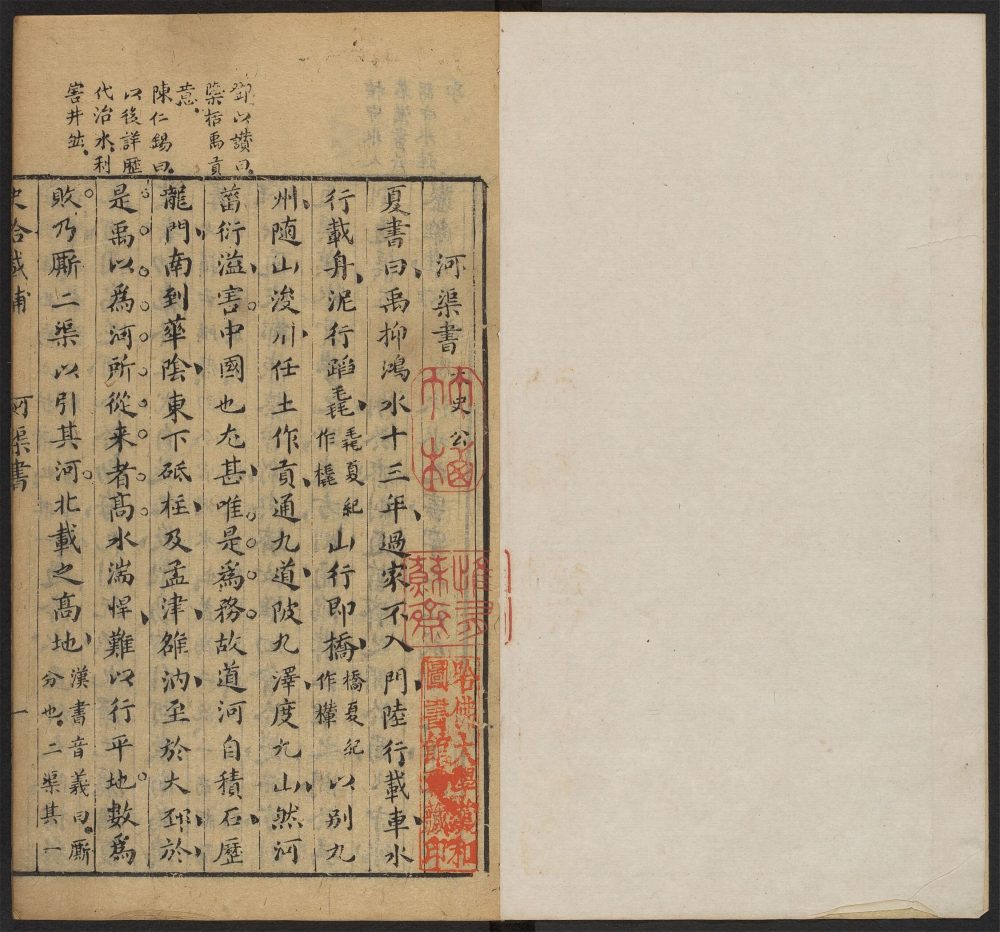 河渠書 太史公
夏書曰禹抑鴻水十三年過家不入門陸行載車水
行載舟泥行蹈毳毳夏紀作橇山行即橋橋夏紀作檋以别九
州随山浚川任土作貢通九道陂九澤度九山然河
菑衍溢害中國也尤甚唯是爲務故道河自積石歷
龍門南到華陰東下砥柱及孟津雒汭至於大邳於
是禹以爲河所從来者髙水湍悍難以行平地數爲
敗乃厮二渠以引其河北載之髙地漢書音義曰厮分也二渠其一
鄧以讃曰
櫽括禹貢
意
陳仁錫曰
以後詳歴
代治水利
害井然
河渠書
一
哈佛大學漢和
圖書館藏印
蘇齋